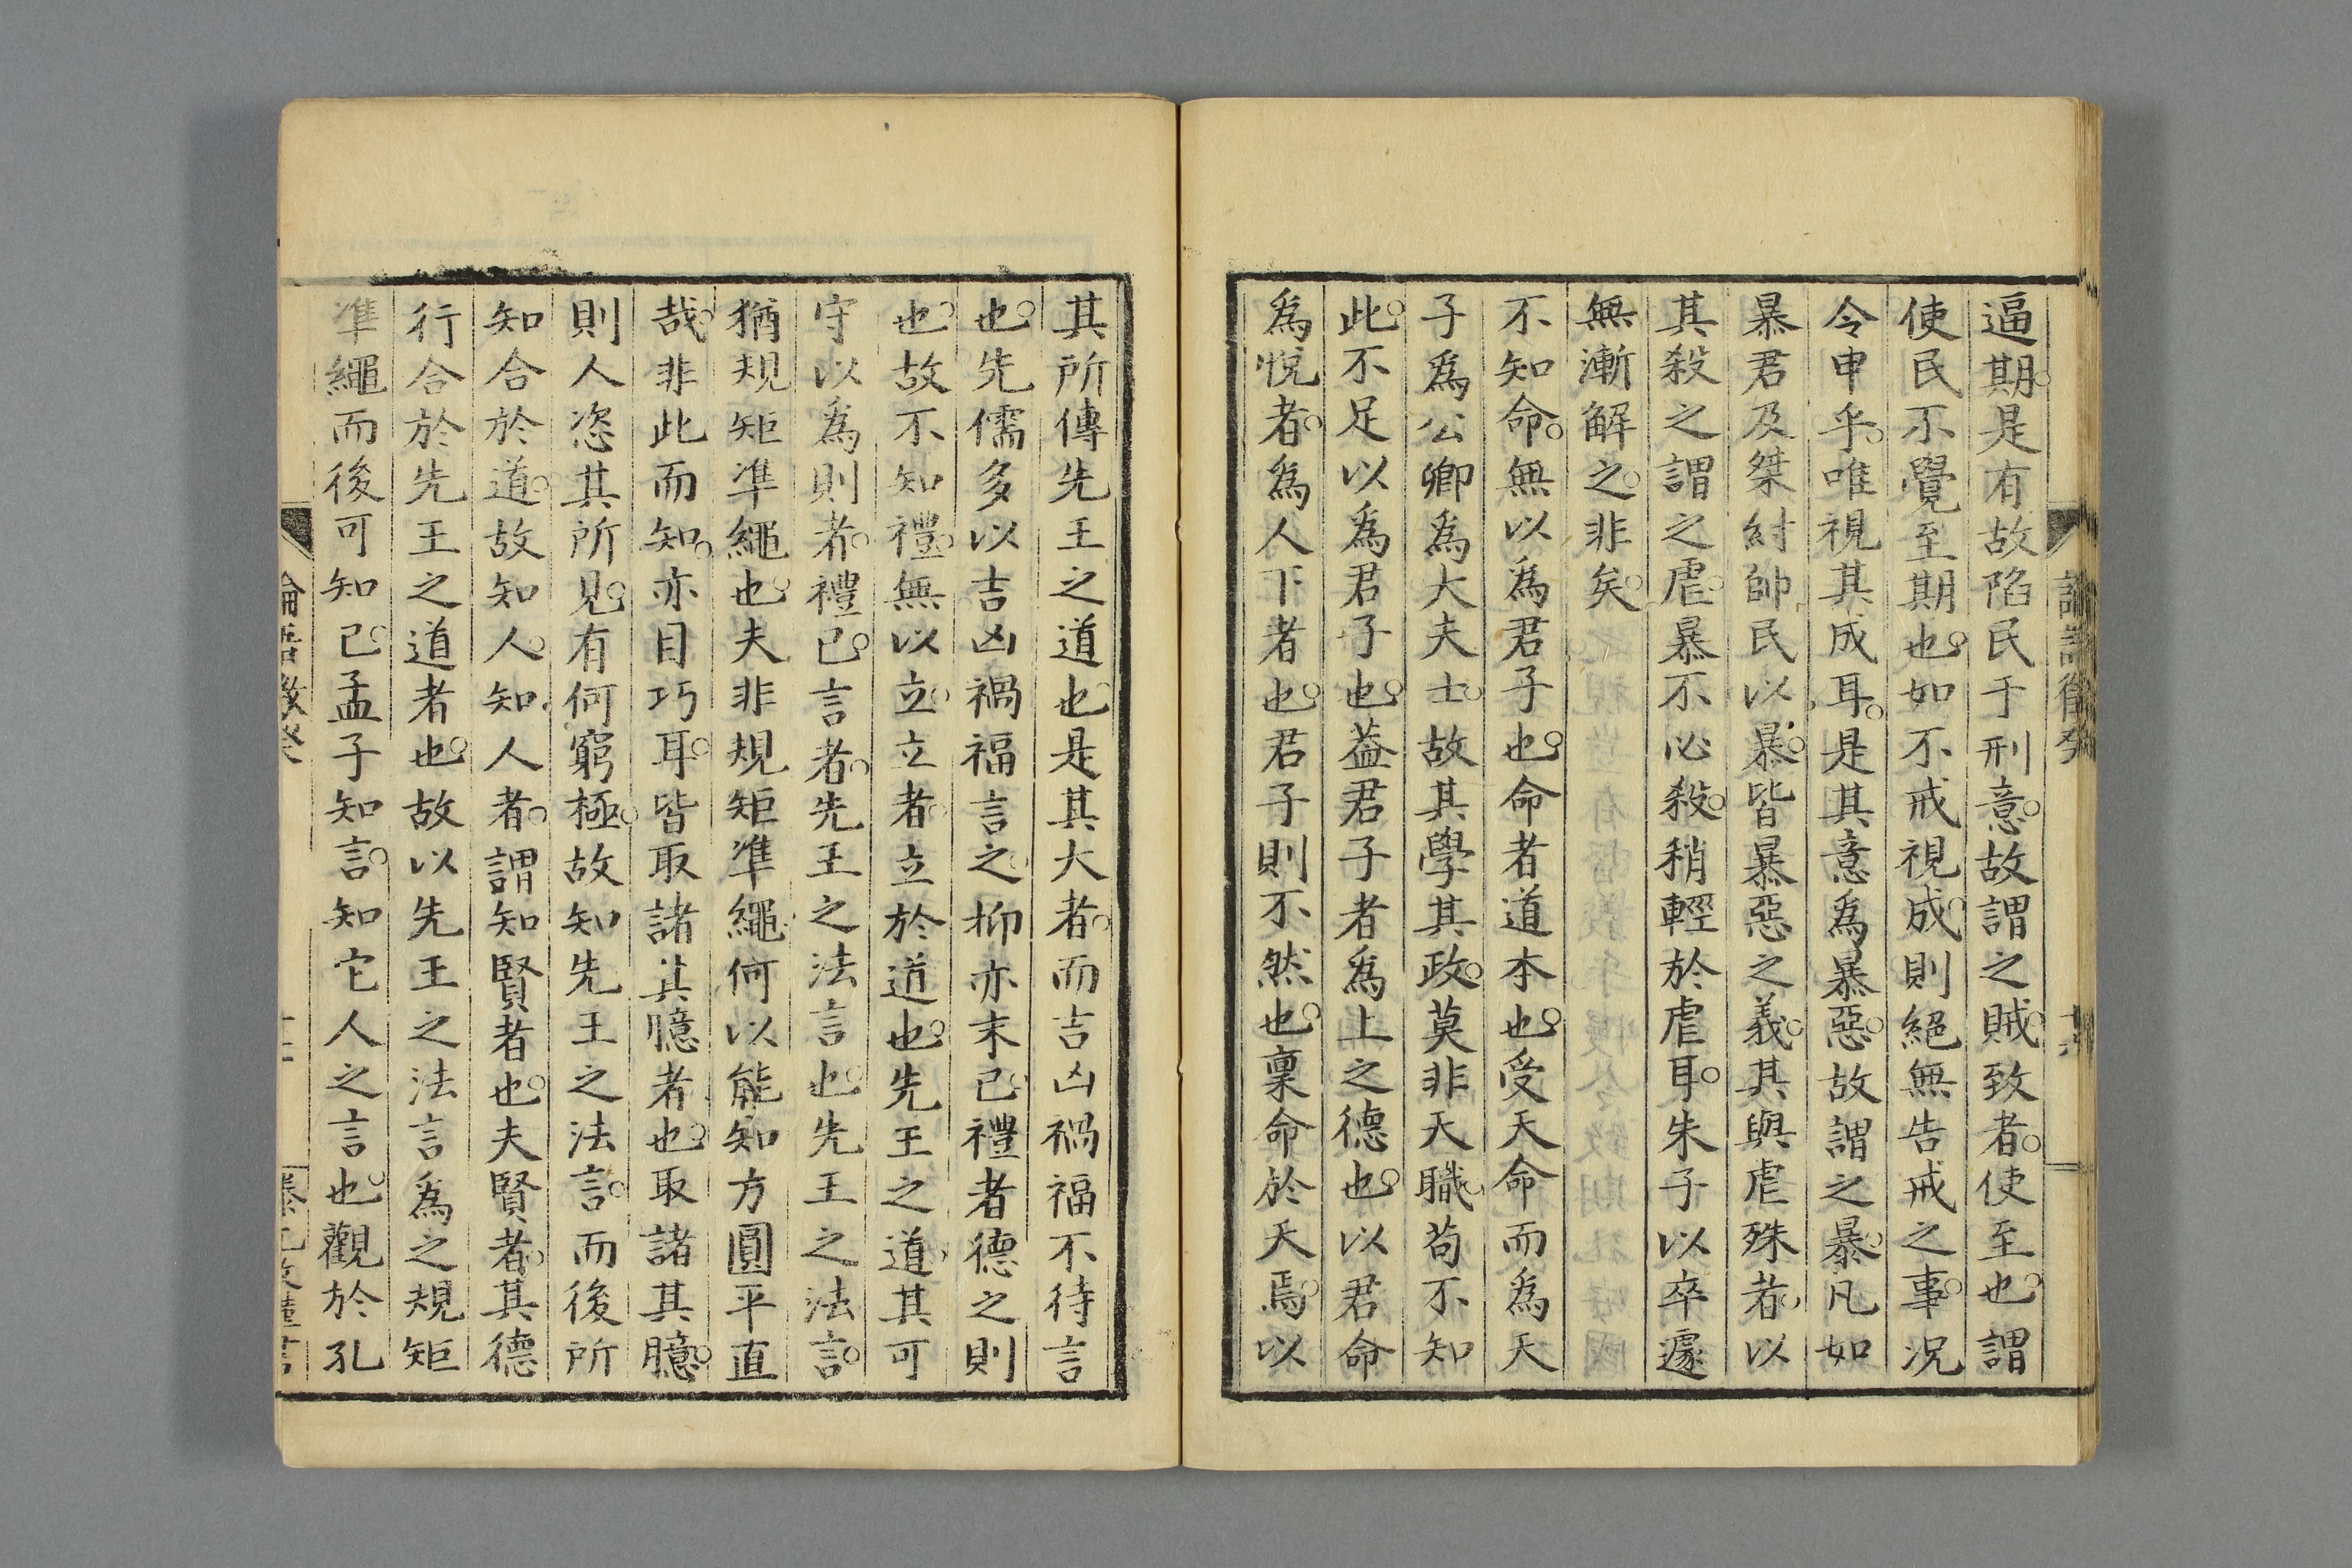 逼期是有故陷民于刑意故謂之賊致者使至也謂
使民不覺至期也如不戒視成則絕無告戒之事况
令申乎唯視其成耳是其意爲暴惡故謂之暴凡如
暴君及桀紂帥民以暴皆暴惡之義其與虐殊者以
其殺之謂之虐暴不必殺稍輕於虐耳朱子以卒遽
無漸解之非矣
不知命無以爲君子也命者道本也受天命而爲天
子爲公卿爲大夫士故其學其政莫非天職苟不知
此不足以爲君子也蓋君子者爲上之德也以君命
爲悅者爲人下者也君子則不然也稟命於天焉以
其所傳先王之道也是其大者而吉凶禍福不待言
也先儒多以吉凶禍福言之抑亦末已禮者德之則
也故不知禮無以立立者立於道也先王之道其可
守以爲則者禮已言者先王之法言也先王之法言
猶規矩準繩也夫非規矩準繩何以能知方圓平直
哉非此而知亦目巧耳皆取諸其臆者也取諸其臆
則人恣其所見有何窮極故知先王之法言而後所
知合於道故知人知人者謂知賢者也夫賢者其德
行合於先王之道者也故以先王之法言爲之規矩
準繩而後可知已孟子知言知它人之言也觀於孔